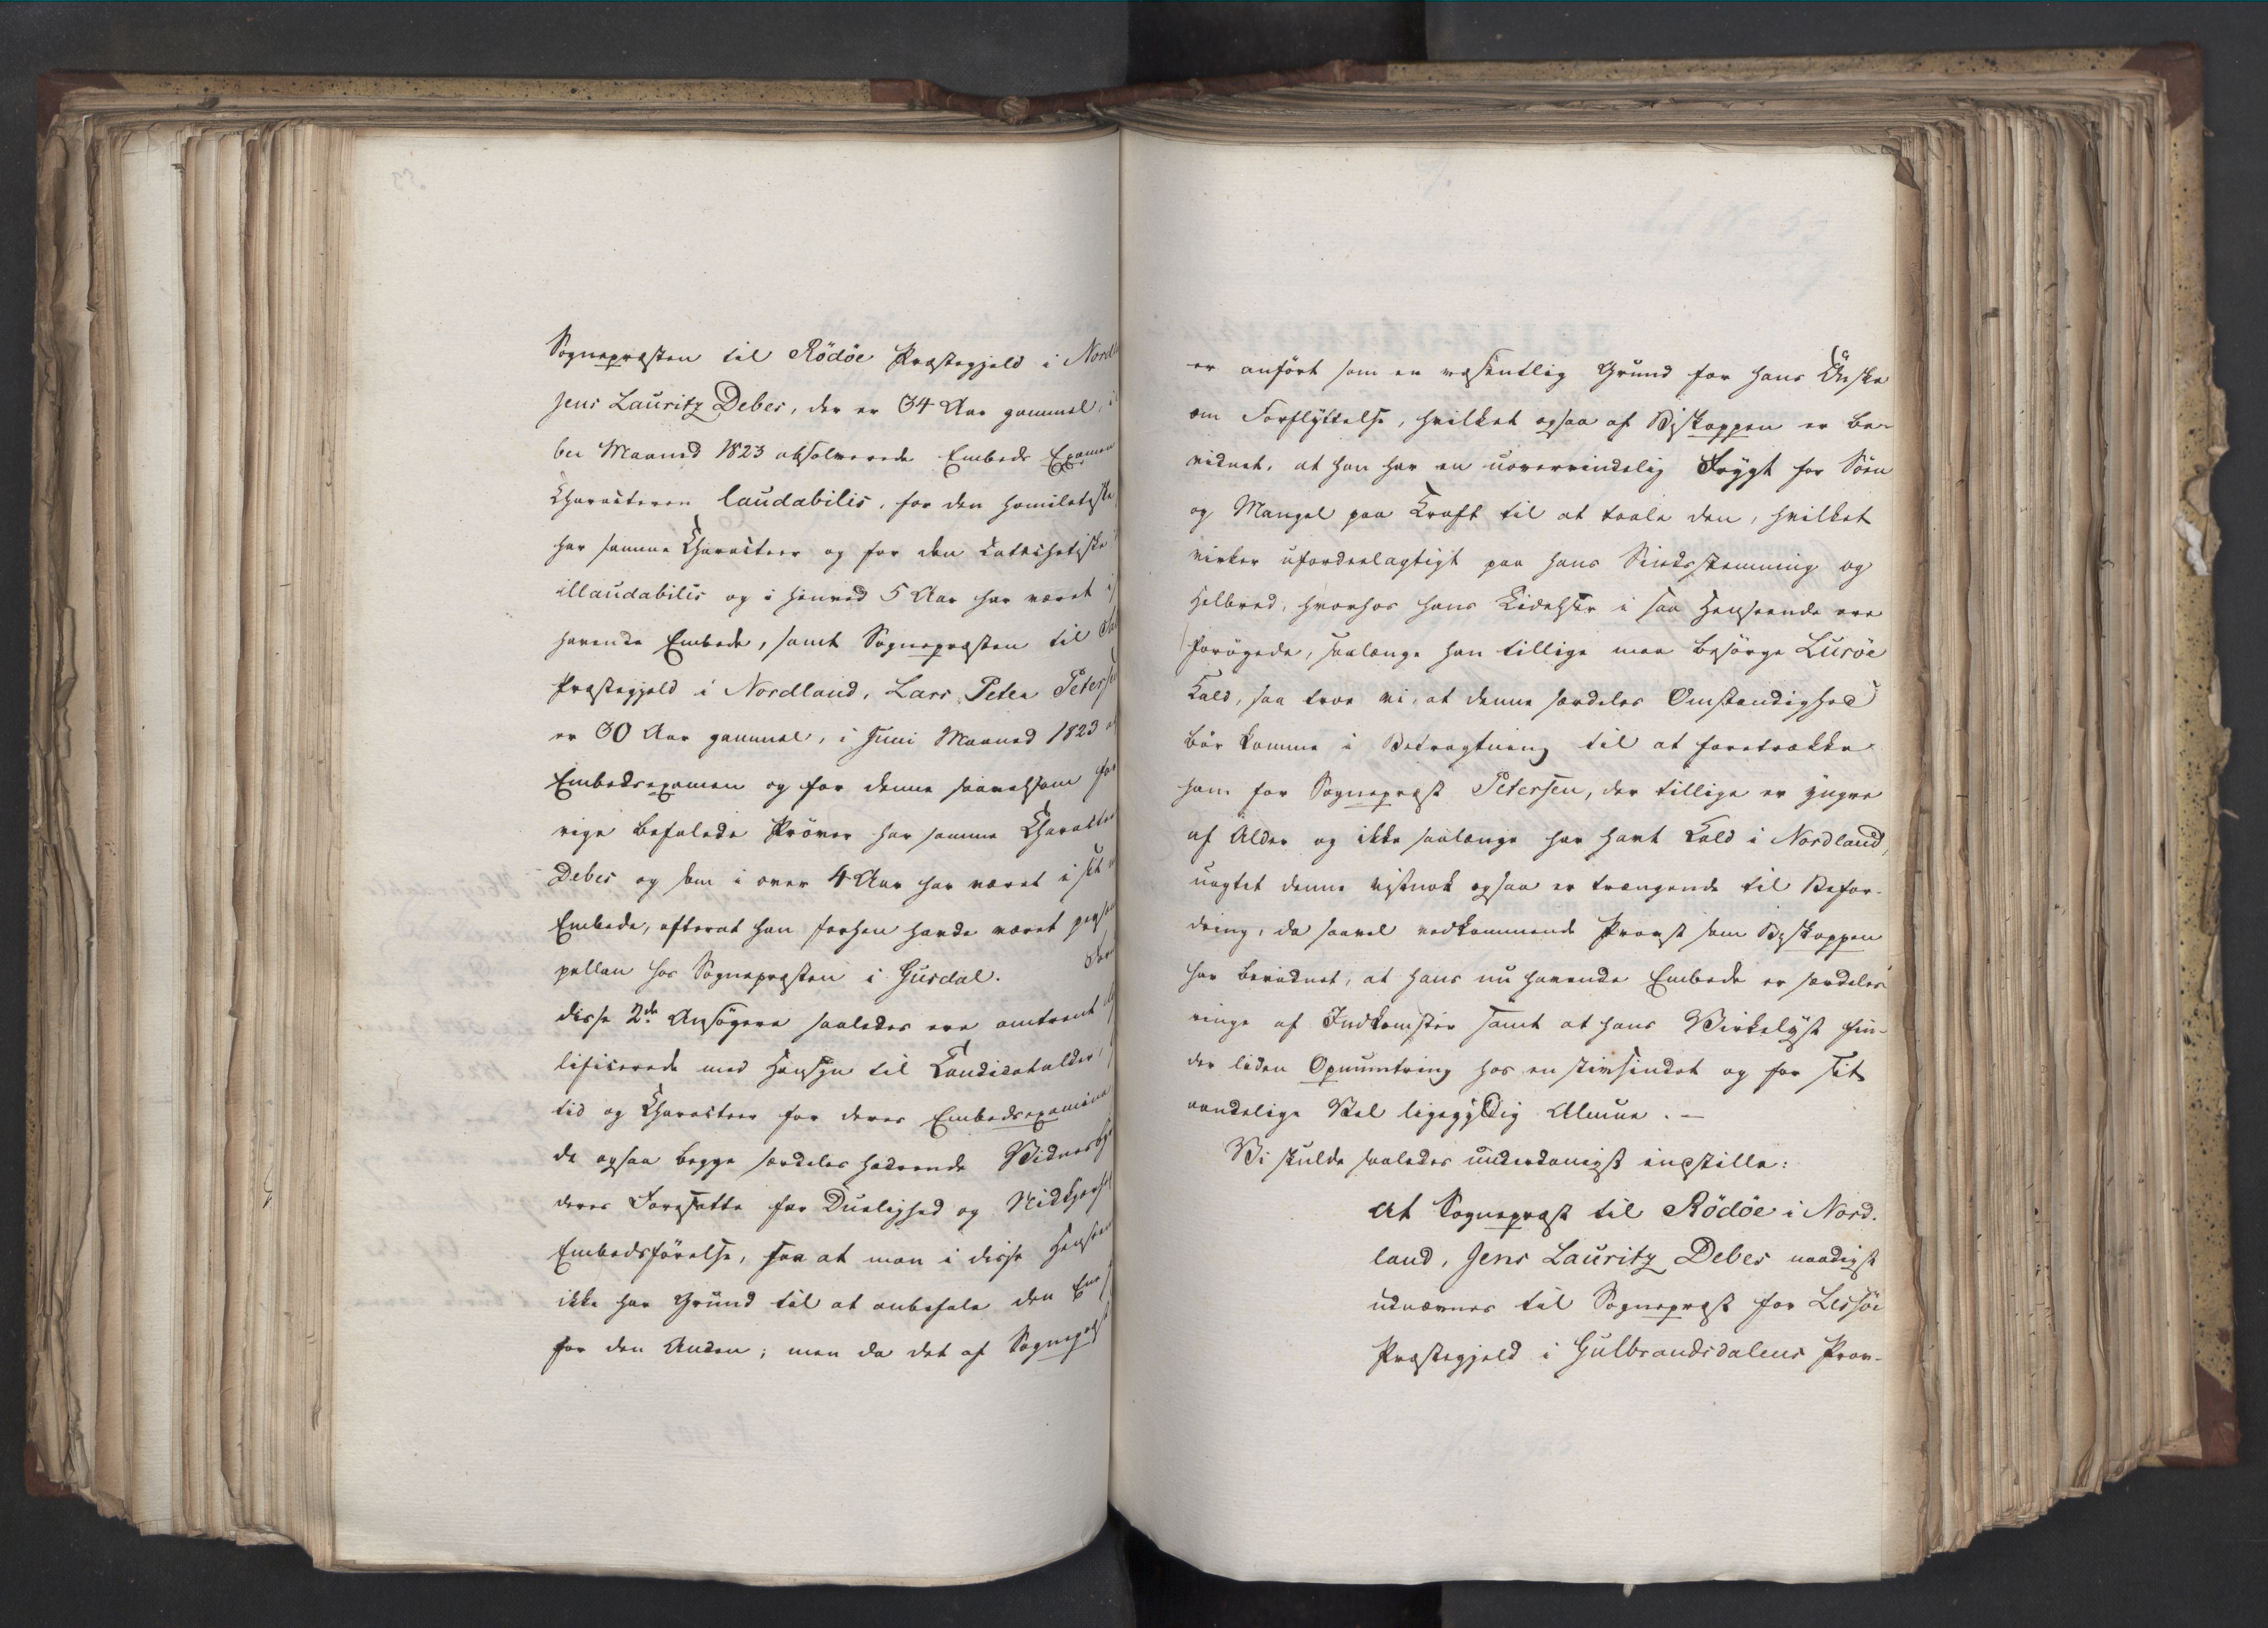 Sognepræsten til Rödöe Præstegjeld i Nordl
Jens Lauritz Debes, der er 34 Aar gammel, i
ber Maaned 1823 absolverede Embeds Examen
Charakteren laudabilis, for den homiletiske
har samme Charakteer og for den Katechetiske
illaudabilis og i henved 5 Aar har været i
havende Embede, samt Sognepræsten til
Præstegjeld i Nordland, Lars Peter Peters
er 30 Aar gammel, i Juni Maaned 1823
Embedsexamen og for denne saavelsom for
rige befalede Pröver har samme Charakte
Debes og som i over 4 Aar har været i sit
Embede, efterat han forhen havde været pers
pellan hos Sognepræsten i Gusdal.
disse 2de Ansögere saaledes ere omtrent
lificerede med Hensyn til Candidatalder,
tid og Charakteer for deres Embedsexamina
da ogsaa begge særdeles hædrende Vidnesby
deres Foresatte for Duelighed og Nidkjærh
Embedsförelse, saa at man i disse Hensee
ikke har Grund til at anbefale den Ene
for den Anden; men da det af Sognepræst
er anfört som en væsentlig Grund for hans Önske
om Forflyttelse, hvilket ogsaa af Biskoppen er be-
vidnet, at han har en uovervindelig Frygt for Söen
og Mangel paa Kraft til at taale den, hvilket
virker ufordeelagtigt paa hans Sindsstemning og
Helbred, hvorhos hans Lidelser i saa Henseende ere
forögede, saalænge han tillige maa besörge Luröe
Kald, saa troe vi, at denne særdeles Omstændighed
bör komme i Betragtning til at foretrække
ham for Sognepræst Petersen, der tillige er yngre
af Alder og ikke saalænge har havt Kald i Nordland,
uagtet denne vistnok ogsaa er trængende til Befor-
dring, da saavel vedkommende Provst som Biskoppen
har bevidnet, at hans nu havende Embede er særdeles
ringe af Indkomster samt at hans Virkelyst fin-
der liden Opmuntring hos en stivsindet og for sit
aandelige Vel ligegyldig Almue. —
Vi skulde saaledes underdanigst indstille:
At Sognepræst til Rödöe i Nord-
land, Jens Lauritz Debes naadigst
udnævnes til Sognepræst for Lessöe
Præstegjeld i Gulbrandsdalens Prov-